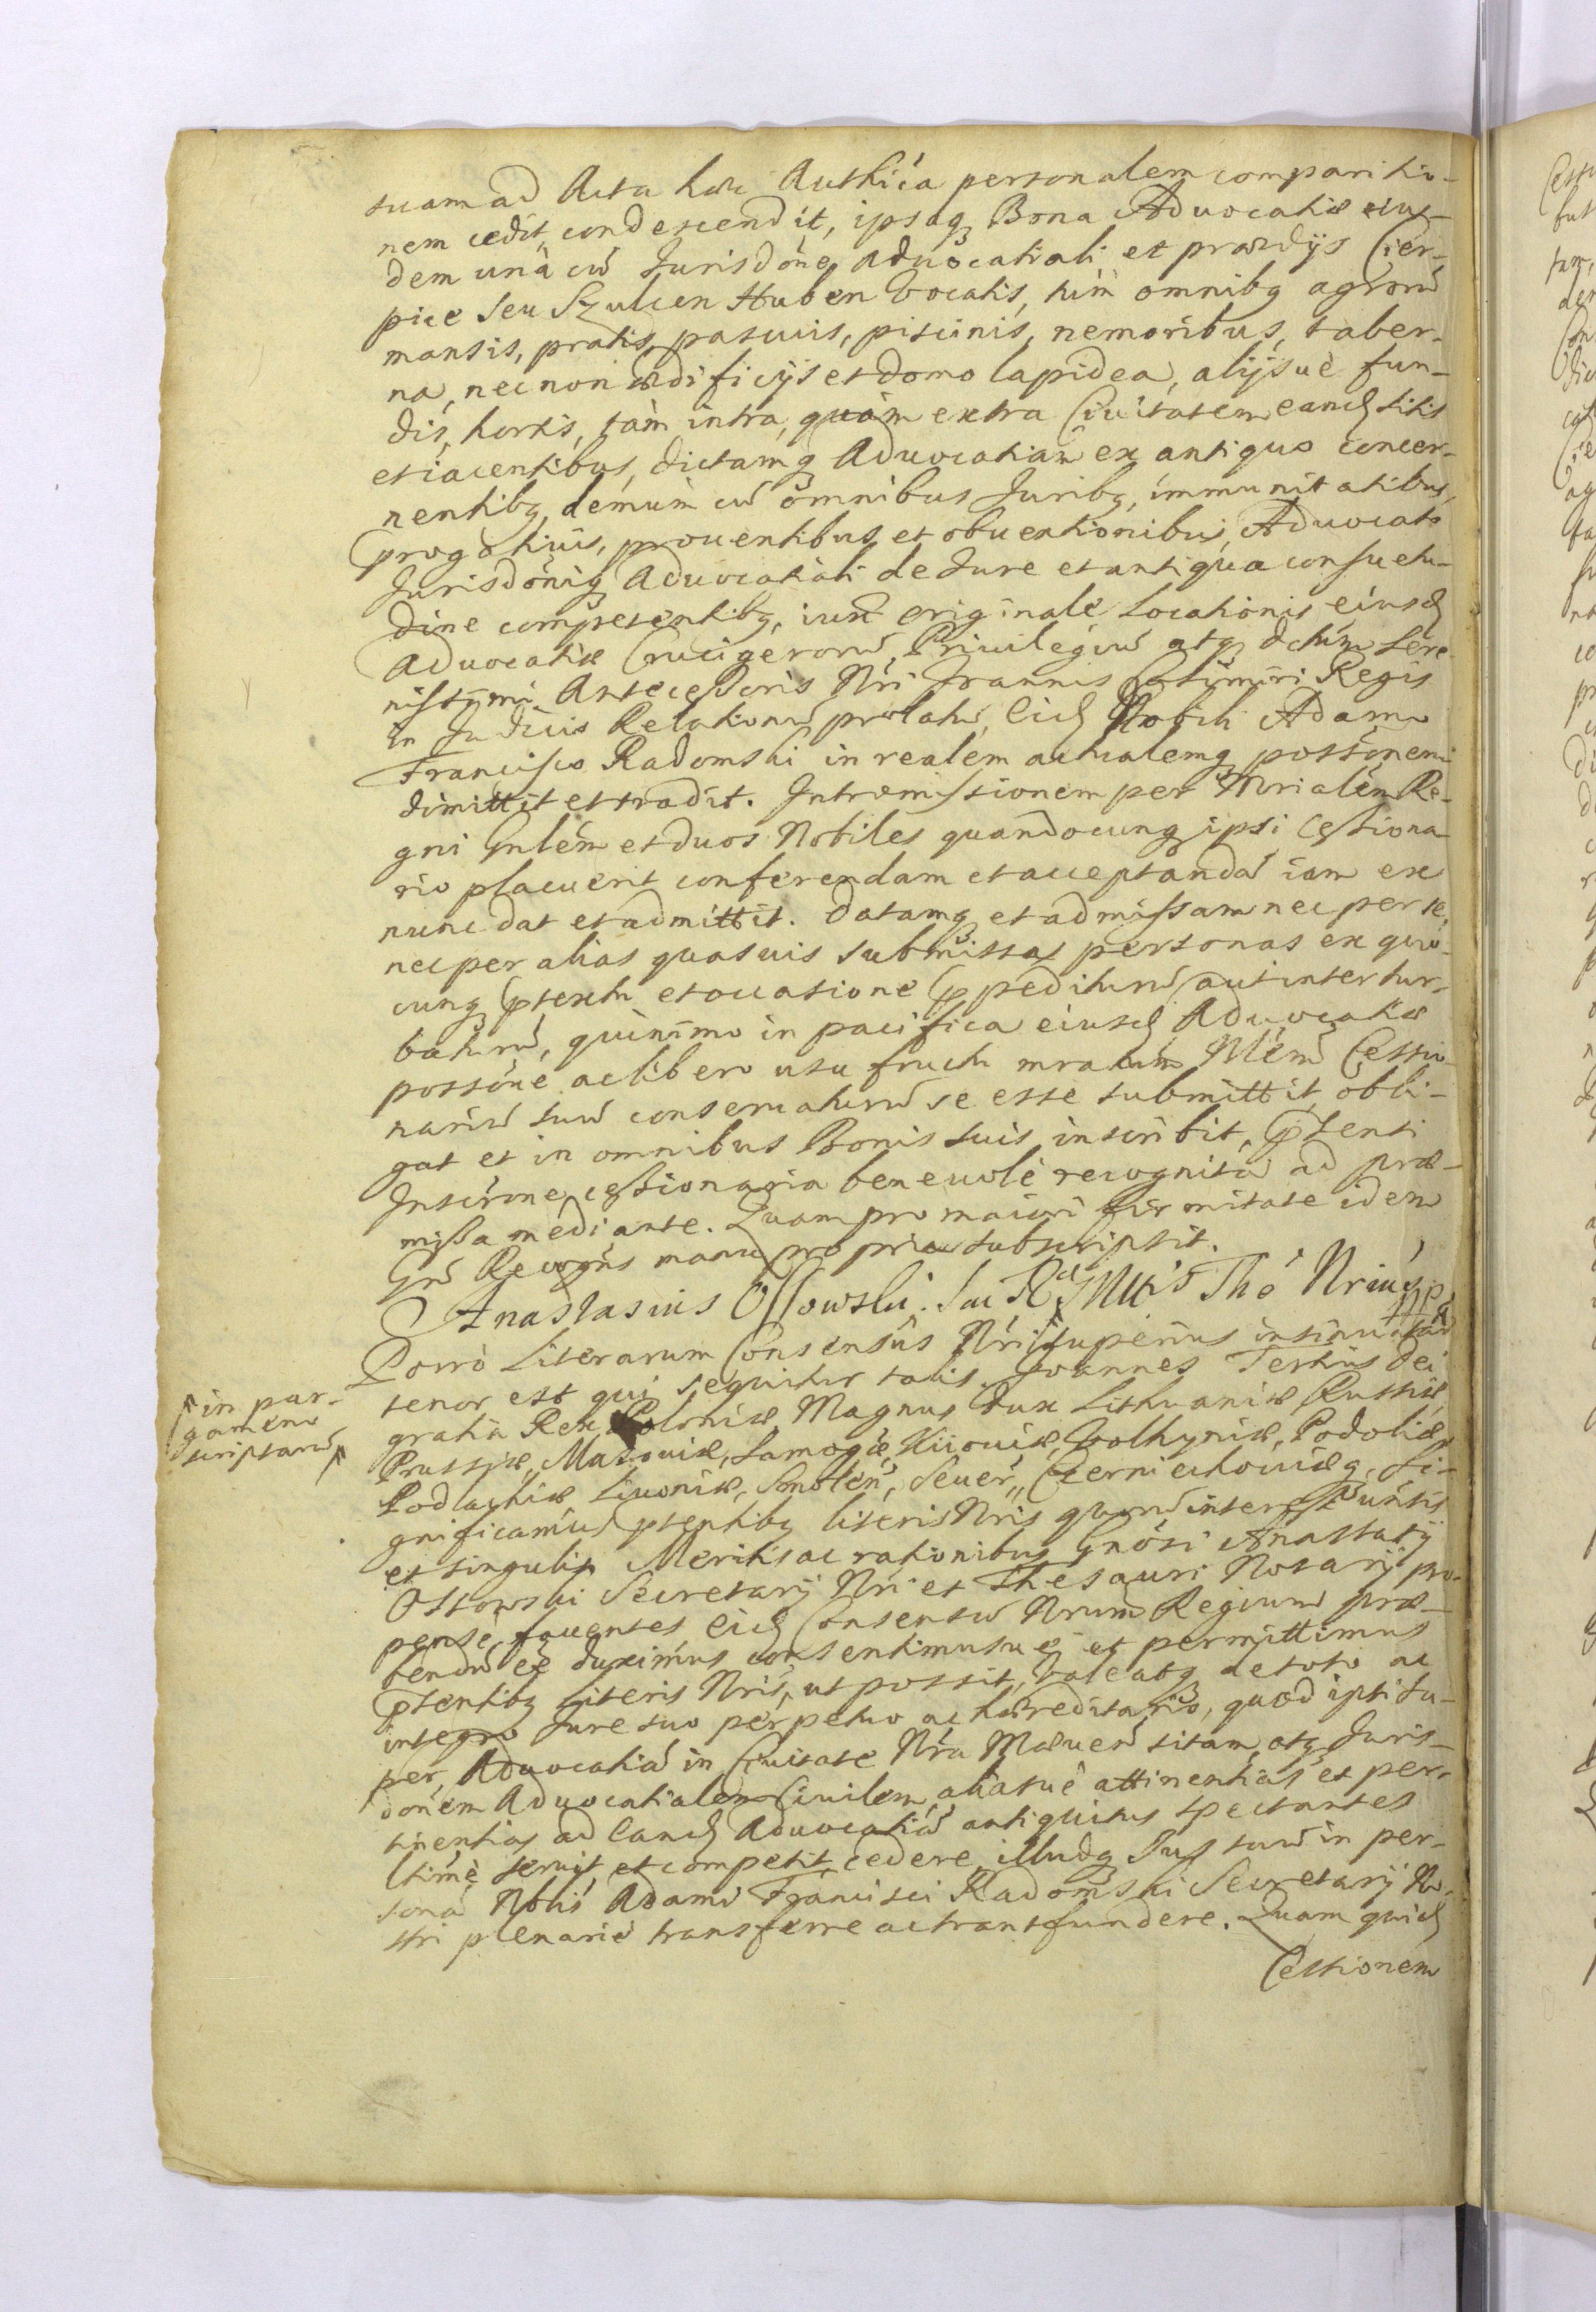 suam ad Acta haec Authica personalem comparitio-
nem cedit, condescendit, ipsaq Bona Advocatiæ eius-
dem unà cũ Jurisdõne Advocatiali et prædÿs Cier-
pice seu Szulcen Huben vocatis, tùm omnibq agrorũ
mansis, pratis, pascuis, piscinis, nemoribus, taber-
na, necnon ædificÿs et domo lapidea, alÿsuè fun-
dis, hortis, tàm intra, quàm extra Ciuitatem eand sitis
et iacentibus, dictamq Aduocatiam ex antiquo concer-
nentibq, demùm cũ omnibus Juribq, immunitatibus,
progatiuis, prouentibus et obuentionibus, Aduocato
Jurisdõniq Aduocatiali de Jure et antiqua consuetu-
dine competentibq, iuxt originale Locationis eiusd
Aduocatiæ Crucigerorũ Priuilegiũ atq dctum Sere-
nissimi Antecessoris Nri Joannis Casimiri Regis
in Judicis Relationũ prolatũ, Eid Nobili Adamo
Francisco Radomski in realem actualemq possõnem
dimittit et tradit. Intromissionem per Mrialem Re-
gni Gnlem et duos Nobiles quandocunq ipsi Cessiona-
rio placuerit conferendam et acceptandã iam ex
nunc dat et admittit. Datamq et admissam nec per se,
nec per alias quasuis submissas personas ex quo-
cunq ptextu et occasione ppediturũ aut intertur-
baturũ, quinimo in pacifica eiusd Aduocatiæ
possõne ac libero usu fructu mratum Nlem Cessio-
nariũ suũ conseruaturũ se esse submittit, obli-
gat et in omnibus Bonis suis inscribit, psenti
Inscrõne cessionaria beneuolè recognita ad præ-
missa mediante. Quam pro maiori firmitate idem
Gñs Recogñs manu propria subscripsit.
Anastasius Ossowski. Sac R Mttis The Nrius mp
Porrò Literarum Consensûs Nri superius insinuatarũ
↑ in par-
gameno
scriptarũ ↑
tenor est qui sequitur talis. Joannes Tertius Dei
gratia Rex Poloniæ Magnus Dux Lithuaniæ Russiæ
Prussiæ, Masouiæ, Samogiæ, Kiiouiæ, Volhyniæ, Podoliæ,
Podlachiæ, Liuoniæ, Smolen, Seuer, Czerniechouiæq, Si-
gnificamus psentibq literis Nris quorũ interest uñsis
et singulis. Meritis ac rationibus Gnosi Anastasÿ
Ossowski Secretarÿ Nri et Thesauri Notarÿ pro-
pensè fauentes Eid Consensũ Nrum Regium præ-
bendũ eẽ duximus consentimusuè et permittimus
psentibq Literis Nris, ut possit, valeatq de toto ac
integro Jure suo perpetuo ac hæreditario, quod ipsi su-
per Aduocatiã in Ciuitate Nra Mæuen sitam, atq Juris-
dõnem Aduocatialem Ciuilem, aliasuè attinentias et per-
tinentias ad Eand Aduocatiã antiquitus spectantes
ltimè seruit et competit, cedere, illudq Jus suũ in per-
sonã Nbilis Adami Francisci Radomski Secretarÿ No-
stri plenariè transferre ac transfundere. Quam quid
Cessionem